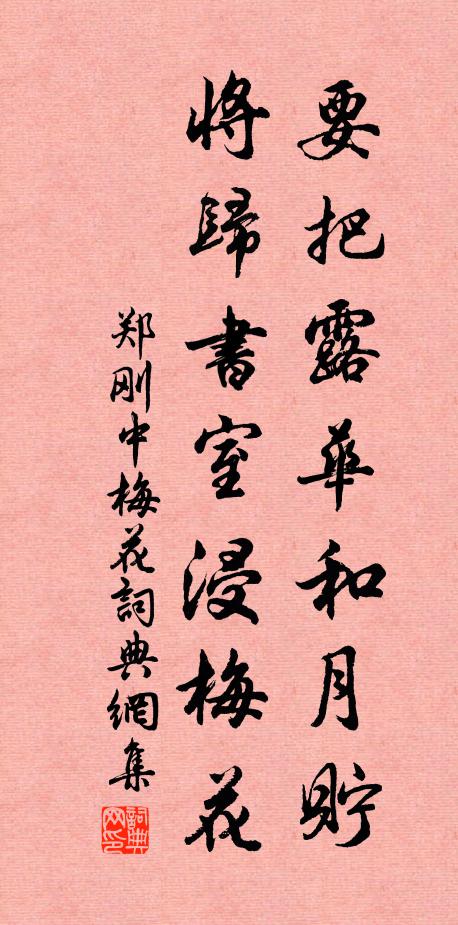 要把露華和月貯
將歸書室浸梅花
郑刚中梅花詞典網集
詞典网印